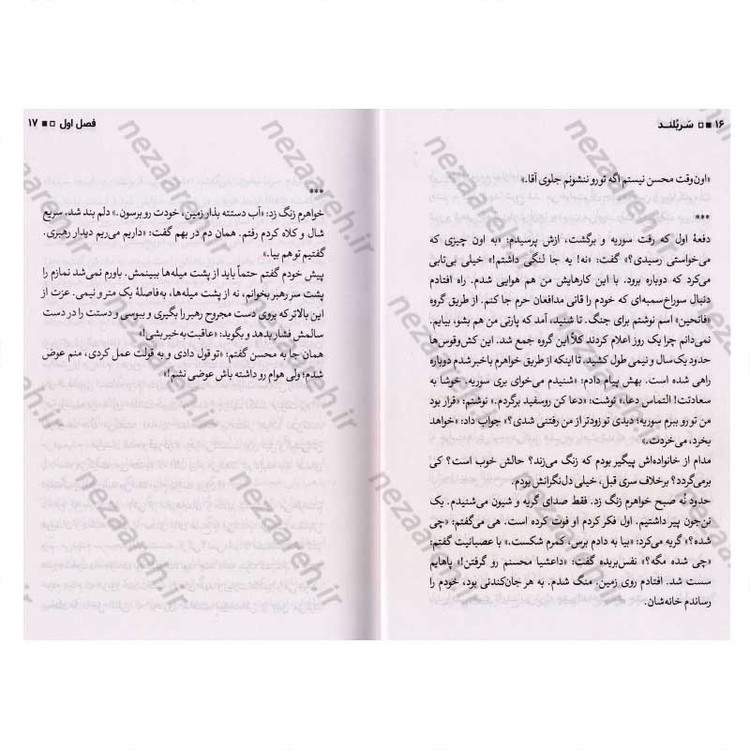 ۱۶ سَربُلند
«اون‌وقت محسن نیستم اگه تو رو ننشونم جلوی آقا.»
***
دفعهٔ اول که رفت سوریه و برگشت، ازش پرسیدم: «به اون چیزی که
می‌خواستی رسیدی؟» گفت: «نه! یه جا لنگی داشتم!» خیلی بی‌تابی
می‌کرد که دوباره برود. با این کارهایش من هم هوایی شدم. راه افتادم
دنبال سوراخ‌سمبه‌ای که خودم را قاتی مدافعان حرم جا کنم. از طریق گروه
«فاتحین» اسم نوشتم برای جنگ. تا شنید، آمد که پارتی من هم بشو، بیایم.
نمی‌دانم چرا یک روز اعلام کردند کلاً این گروه جمع شد. این کش‌وقوس‌ها
حدود یک‌سال و نیمی طول کشید. تا اینکه از طریق خواهرم باخبر شدم دوباره
راهی شده است. بهش پیام دادم: «شنیدم می‌خوای بری سوریه، خوشا به
سعادتت! التماس دعا.» نوشت: «دعا کن روسفید برگردم.» نوشتم: «قرار بود
من تو رو ببرم سوریه؛ دیدی تو زودتر از من رفتنی شدی؟» جواب داد: «خواهد
بخرد، می‌خردت.»
مدام از خانواده‌اش پیگیر بودم که زنگ می‌زند؟ حالش خوب است؟ کی
برمی‌گردد؟ برخلاف سری قبل، خیلی دل‌نگرانش بودم.
حدود نُه صبح خواهرم زنگ زد. فقط صدای گریه و شیون می‌شنیدم. یک
ننجون پیر داشتیم. اول فکر کردم او فوت کرده است. هی می‌گفتم: «چی
شده؟» گریه می‌کرد: «بیا به دادم برس، کمرم شکست.» با عصبانیت گفتم:
«چی شده مگه؟» نفس‌بریده گفت: «داعشیا محسنم رو گرفتن!» پاهایم
سست شد. افتادم روی زمین. منگ شدم. به هر جان‌کندنی بود، خودم را
رساندم خانه‌شان.
فصل اول ۱۷
***
خواهرم زنگ زد: «آب دستته بذار زمین، خودت رو برسون.» دلم بند شد. سریع
شال و کلاه کردم رفتم. همان دم در بهم گفت: «داریم می‌ریم دیدار رهبری.
گفتیم تو هم بیا.»
پیش خودم گفتم حتماً باید از پشت میله‌ها ببینمش. باورم نمی‌شد نمازم را
پشت سر رهبر بخوانم، نه از پشت میله‌ها، به‌فاصلهٔ یک متر و نیمی. عزت از
این بالاتر که بروی دست مجروح رهبر را بگیری و ببوسی و دستت را در دست
سالمش فشار بدهد و بگوید: «عاقبت به خیر بشی!»
همان جا به محسن گفتم: «تو قول دادی و به قولت عمل کردی، منم عوض
شدم؛ ولی هوام رو داشته باش عوضی نشم!»
nezaareh.ir